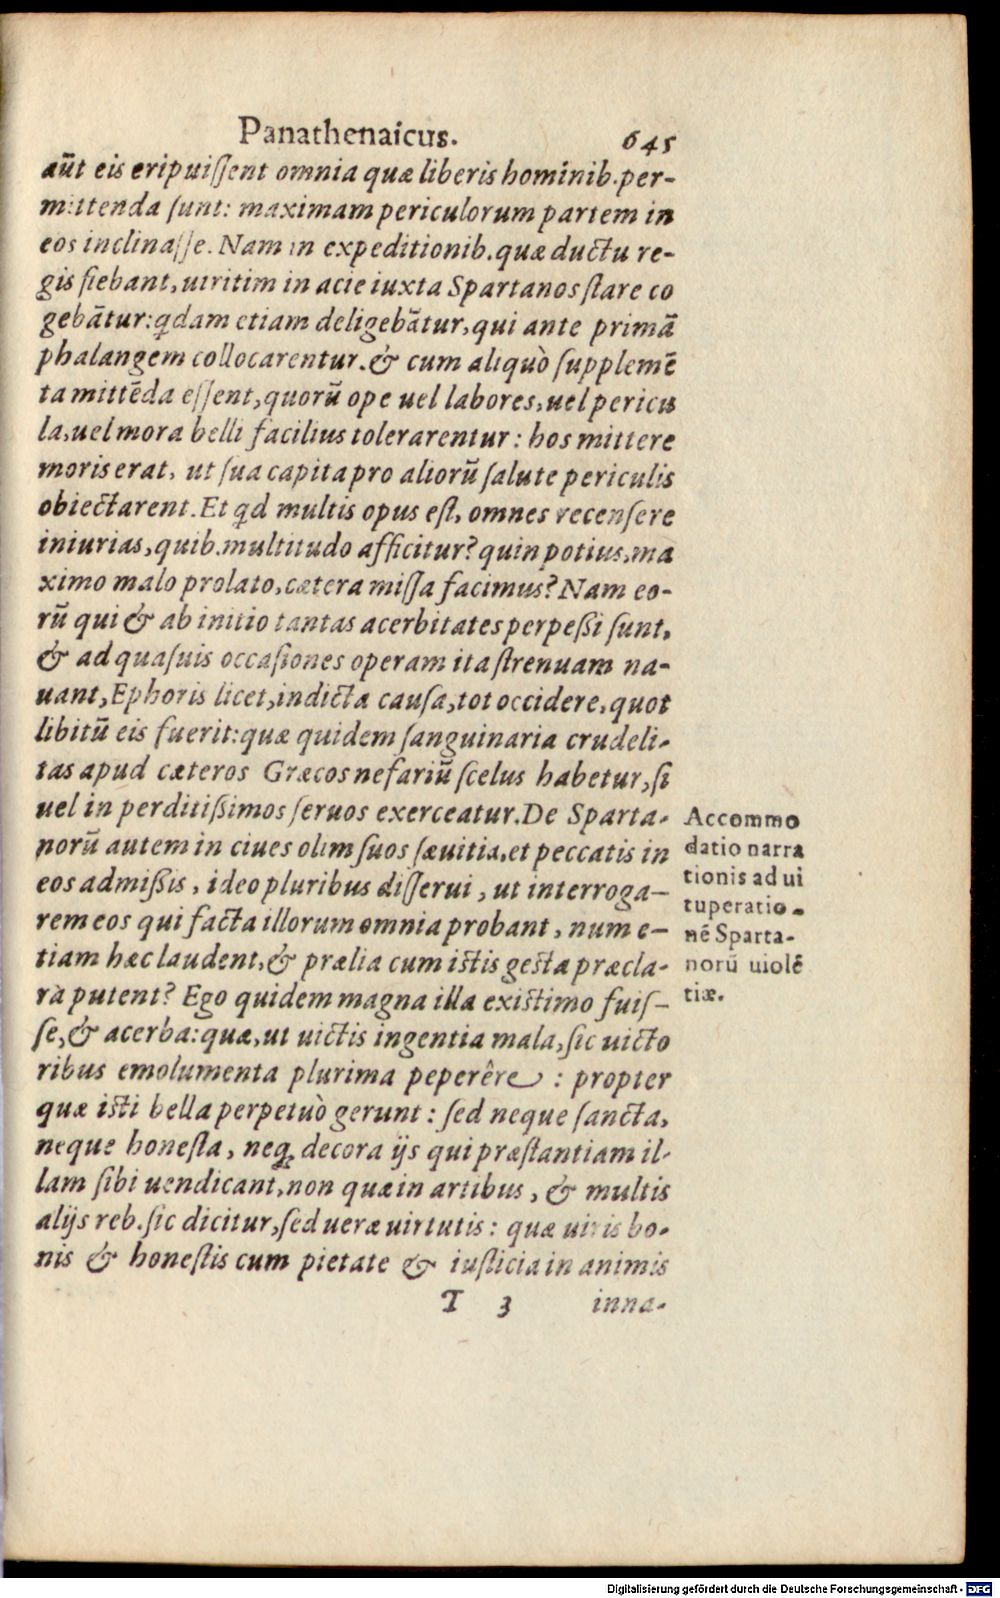 Panathenaicus. 645
aũt eis eripuiſſent omnia quæ liberis hominib. per-
mittenda ſunt: maximam periculorum partem in
eos inclinaſſe. Nam in expeditionib. quæ ductu re-
gis fiebant, uiritim in acie iuxta Spartanos ſtare co
gebãtur: qdam etiam deligebãtur, qui ante primã
phalangem collocarentur. & cum aliquò ſupplemẽ
ta mittẽda eſſent, quorũ ope uel labores, uel pericu
la, uel mora belli facilius tolerarentur: hos mittere
moris erat, ut ſua capita pro aliorũ ſalute periculis
obiectarent. Et qd multis opus eſt, omnes recenſere
iniurias, quib. multitudo afficitur? quin potius, ma
ximo malo prolato, cætera miſſa facimus? Nam eo-
rũ qui & ab initio tantas acerbitates perpeßi ſunt,
& ad quaſuis occaſiones operam ita ſtrenuam na-
uant, Ephoris licet, indicta cauſa, tot occidere, quot
libitũ eis fuerit: quæ quidem ſanguinaria crudeli-
tas apud cæteros Græcos nefariũ ſcelus habetur, ſi
uel in perditißimos ſeruos exerceatur. De Sparta-
norũ autem in ciues olim ſuos ſæuitia, et peccatis in
eos admißis, ideo pluribus diſſerui, ut interroga-
rem eos qui facta illorum omnia probant, num e-
tiam hæc laudent, & prælia cum iſtis geſta præcla-
rà putent? Ego quidem magna illa exiſtimo fuiſ-
ſe, & acerba: quæ, ut uictis ingentia mala, ſic uicto
ribus emolumenta plurima peperêre : propter
quæ iſti bella perpetuò gerunt: ſed neque ſancta,
neque honeſta, neq; decora ijs qui præſtantiam il-
lam ſibi uendicant, non quæ in artibus, & multis
alijs reb. ſic dicitur, ſed ueræ uirtutis: quæ uiris bo-
nis & honeſtis cum pietate & iuſticia in animis
T 3 inna-
Accommo
datio narra
tionis ad ui
tuperatio-
nẽ Sparta-
norũ uiolẽ
tiæ.
Digitalisierung gefördert durch die Deutsche Forschungsgemeinschaft - DFG